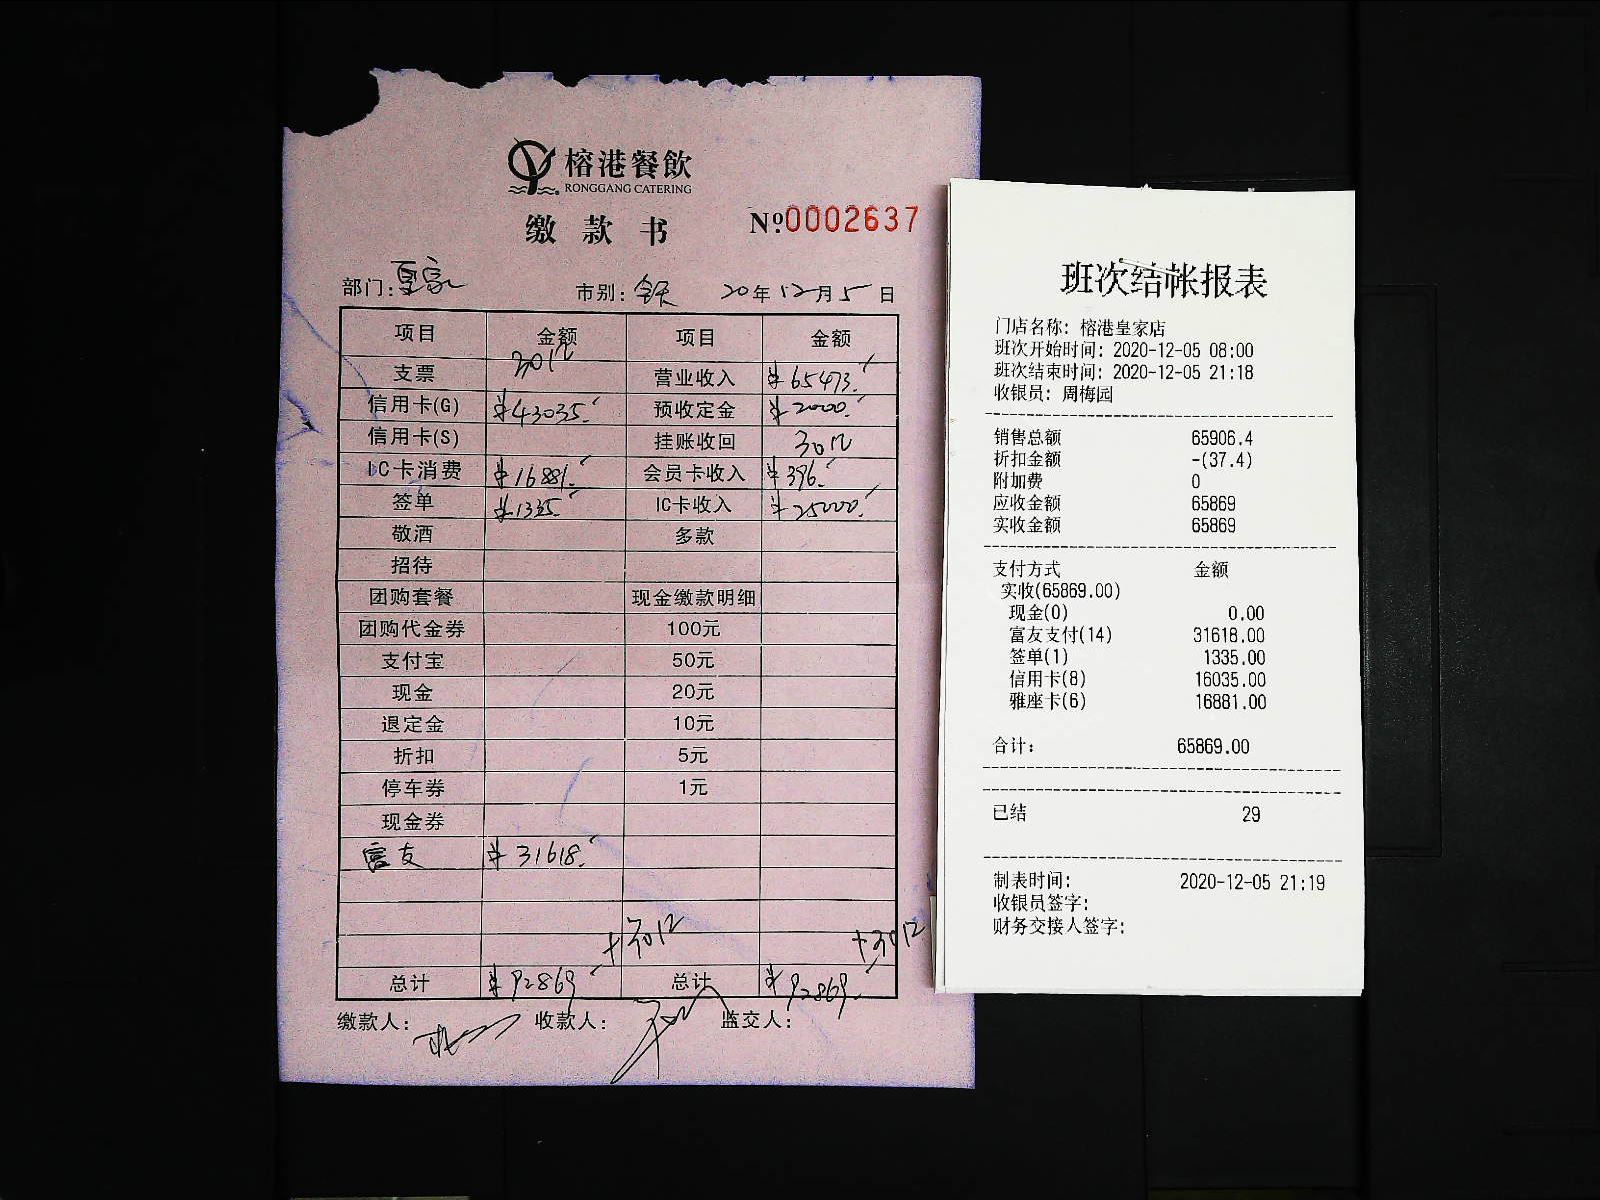 榕港餐飲
RONGGANG CATERING
缴款书 №0002637
部门: 皇家 市别: 全天 20年12月5日
项目 金额 项目 金额
支票 3012 营业收入 ¥65473.
信用卡(G) ¥43035. 预收定金 ¥2000.
信用卡(S) 挂账收回 3012
IC卡消费 ¥16881. 会员卡收入 ¥396.
签单 ¥1335. IC卡收入 ¥25000.
敬酒 多款
招待
团购套餐 现金缴款明细
团购代金券 100元
支付宝 50元
现金 20元
退定金 10元
折扣 5元
停车券 1元
现金券
富友 ¥31618.
+3012 +3012
总计 ¥92869 总计 ¥92869.
缴款人: 收款人: 监交人:
班次结帐报表
门店名称: 榕港皇家店
班次开始时间: 2020-12-05 08:00
班次结束时间: 2020-12-05 21:18
收银员: 周梅园
销售总额 65906.4
折扣金额 -(37.4)
附加费 0
应收金额 65869
实收金额 65869
支付方式 金额
实收(65869.00)
现金(0) 0.00
富友支付(14) 31618.00
签单(1) 1335.00
信用卡(8) 16035.00
雅座卡(6) 16881.00
合计: 65869.00
已结 29
制表时间: 2020-12-05 21:19
收银员签字:
财务交接人签字: